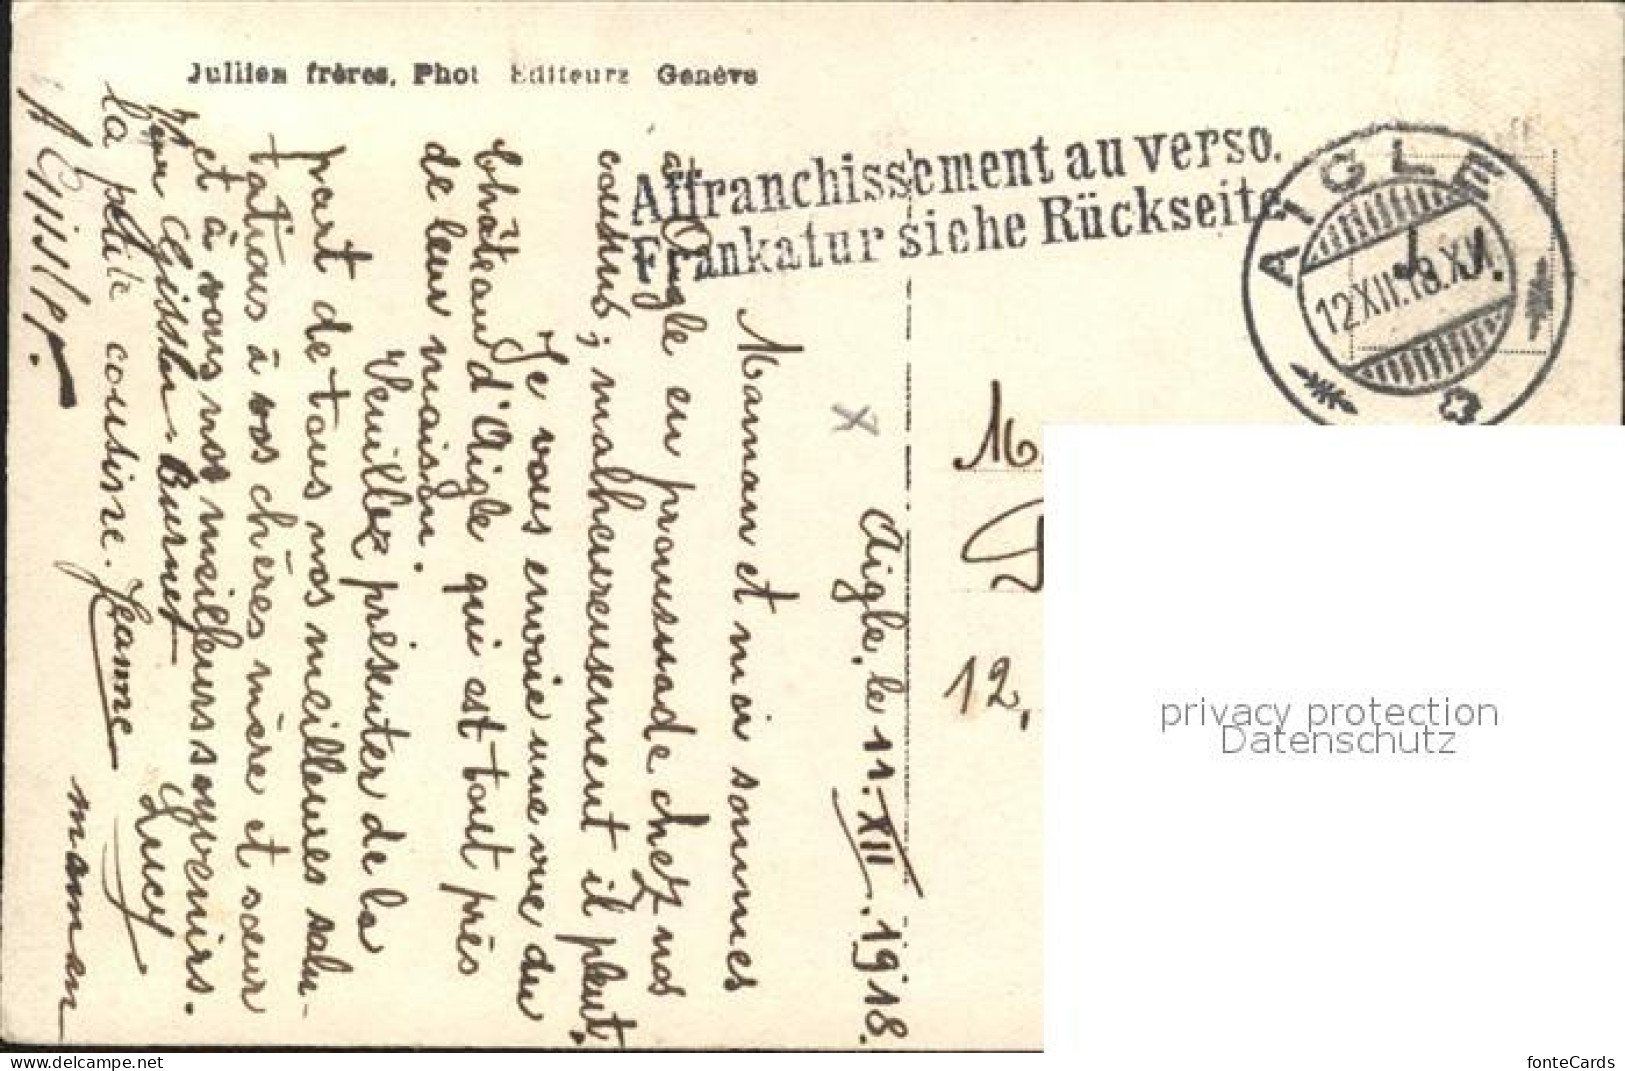 Jullien frères, Phot Editeurs Genève
Affranchissement au verso.
Frankatur siehe Rückseite
AIGLE
12.XII.18.XI
M.
12.
Aigle, le 11. XII. 1918.
Maman et moi sommes
à Aigle en promenade chez nos
cousins; malheureusement il pleut.
Je vous envoie une vue du
Château d'Aigle qui est tout près
de leur maison.
Veuillez présenter de la
part de tous nos meilleures salu-
tations à vos chères mère et sœur
et à vous nos meilleurs souvenirs.
Burnet Lucy
La petite cousine. Jeanne
maman
privacy protection
Datenschutz
www.delcampe.net
fonteCards